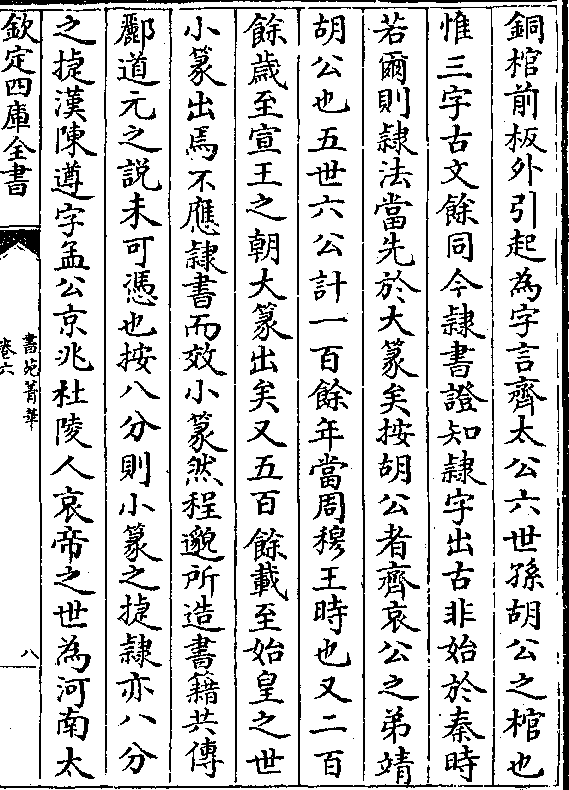 銅棺前板外引起為字言齊太公六世孫胡公之棺也
惟三字古文餘同今隸書證知隸字出古非始於秦時
若爾則隸法當先於大篆矣按胡公者齊哀公之弟靖
胡公也五世六公計一百餘年當周穆王時也又二百
餘歲至宣王之朝大篆出矣又五百餘載至始皇之世
小篆出焉不應隸書而效小篆然程邈所造書籍共傳
酈道元之說未可憑也按八分則小篆之捷隸亦八分
之捷漢陳遵字孟公京兆杜陵人哀帝之世為河南太
欽定四庫全書
書苑菁華
卷六
八